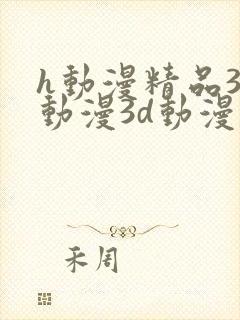 h動漫精品3
動漫3d動漫
禾周